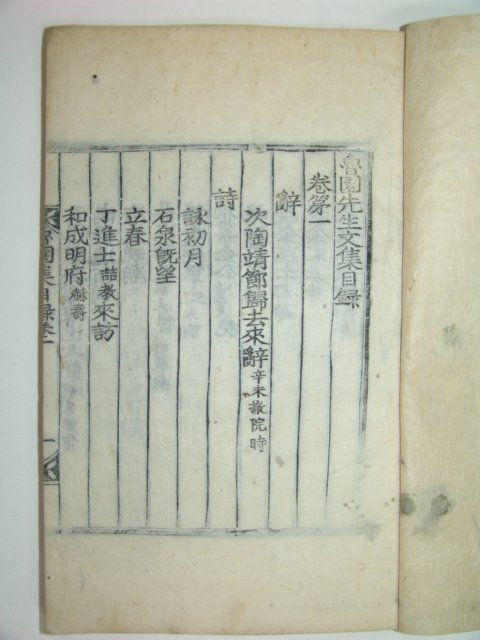 魯園先生文集目錄
卷第一
辭
次陶靖節歸去來辭 辛未撤院時
詩
詠初月
石泉旣望
立春
丁進士喆敎來訪
和成明府赫壽
魯園集目錄卷一